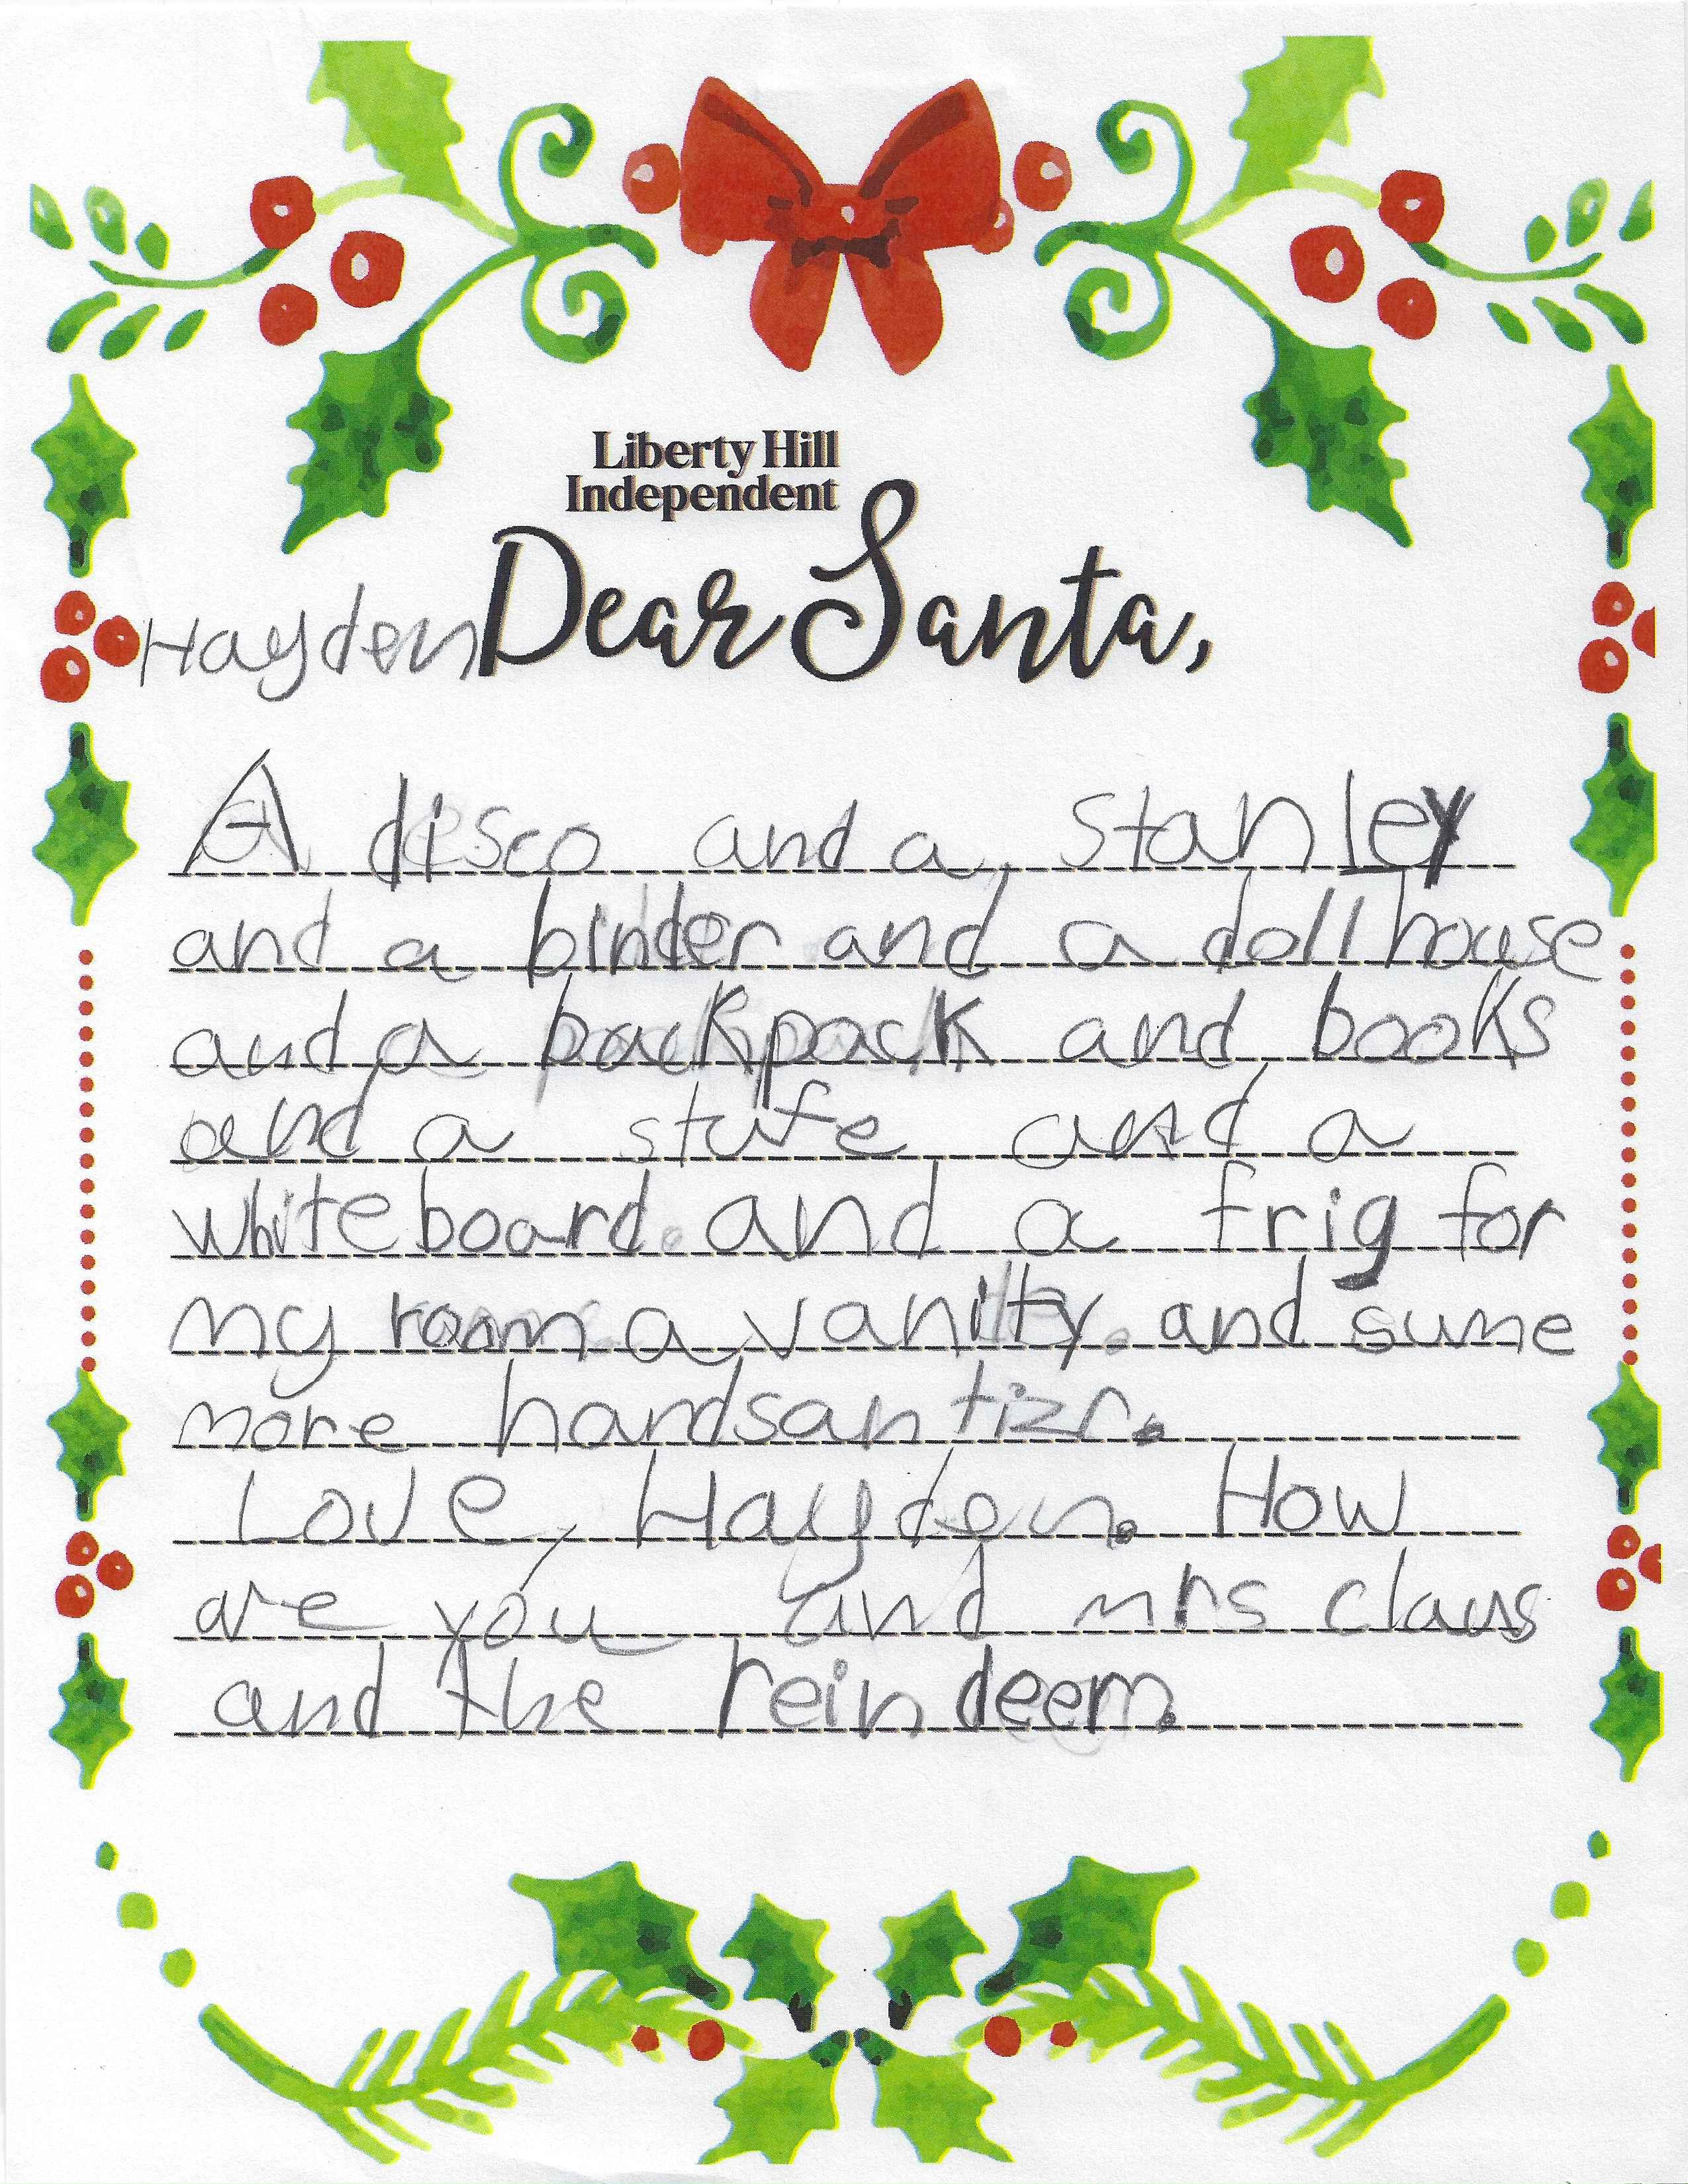 Liberty Hill
Independent
Hayden Dear Santa,
A disco and a stanley
and a binder and a dollhouse
and a backpack and books
and a stufe and a
whiteboard and a frig for
my room a vanity. and sume
more handsantizr.
Love, Hayden. How
are you and mrs claus
and the reindeer.